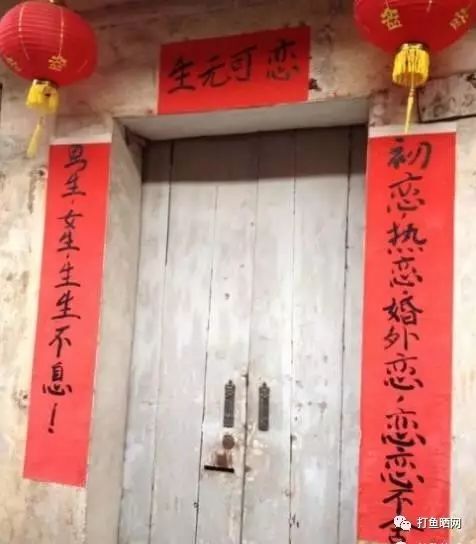 生无可恋
初恋,热恋,婚外恋,恋恋不舍
男生,女生,生生不息!
打鱼晒网